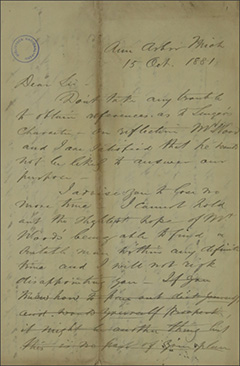 Ann Arbor Mich
15 Oct. 1881
Dear Sir -
Don't take any trouble
to obtain references as to
Character - on reflection Mr Wood
and I are satisfied that he would
not be likely to answer our
purpose -
I advise you to lose no
more time. I cannot hold
out the slightest hope of Mr
Wood's being able to find a
suitable man within any definite
time and I will not risk
disappointing you - If you
knew how to
it might be another thing but
this is no part of plan